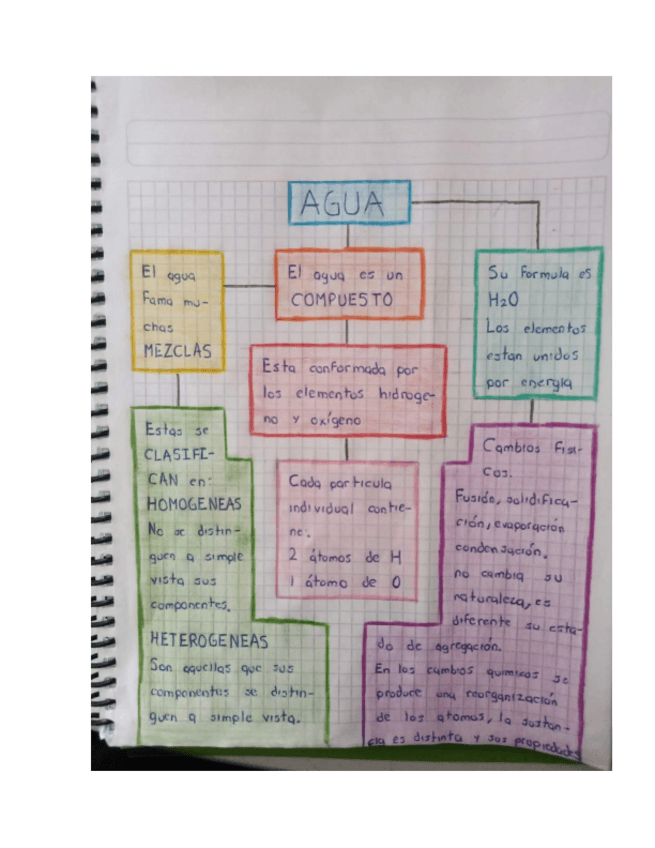 AGUA
El agua
Fama mu-
chas
MEZCLAS
El agua es un
COMPUESTO
Su formula es
H2O
Los elementos
estan unidos
por energía
Esta conformada por
los elementos hidroge-
no y oxígeno
Estas se
CLASIFI-
CAN en:
HOMOGENEAS
No se distin-
guen a simple
vista sus
componentes.
HETEROGENEAS
Son aquellas que sus
componentes se distin-
guen a simple vista.
Cada particula
individual contie-
ne:
2 átomos de H
1 átomo de O
Cambios Físi-
cos.
Fusión, solidifica-
ción, evaporación
condensación.
no cambia su
naturaleza, es
diferente su esta-
do de agregación.
En los cambios químicos se
produce una reorganización
de los atomos, la sustan-
cia es distinta y sus propiedades